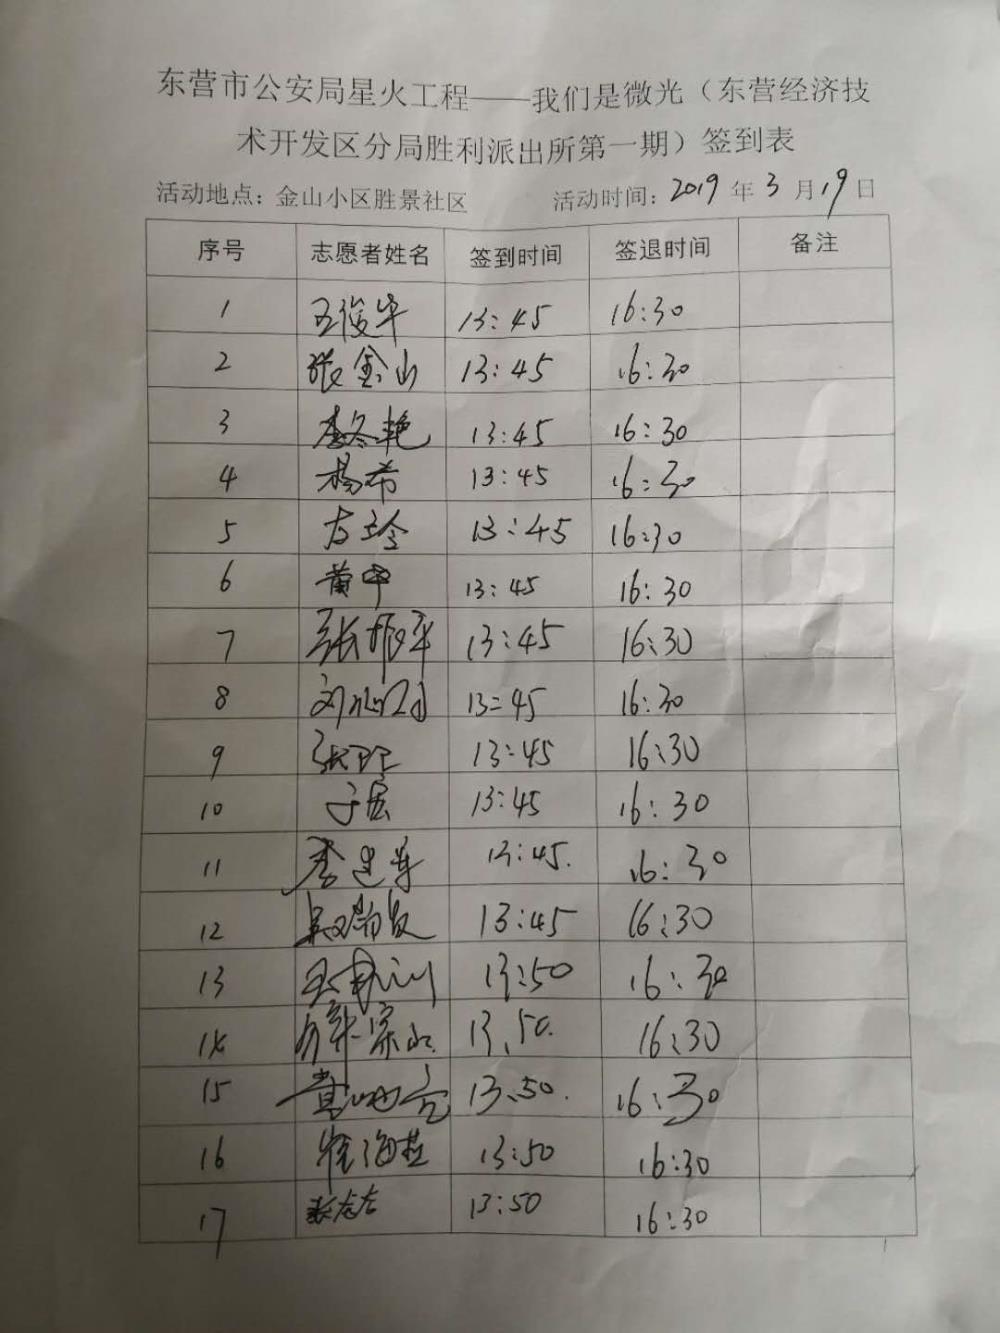 东营市公安局星火工程——我们是微光（东营经济技
术开发区分局胜利派出所第一期）签到表
活动地点：金山小区胜景社区 活动时间：2019年3月19日
序号 志愿者姓名 签到时间 签退时间 备注
1 王俊华 13:45 16:30
2 张金山 13:45 16:30
3 李冬艳 13:45 16:30
4 杨希 13:45 16:30
5 13:45 16:30
6 黄中 13:45 16:30
7 张振平 13:45 16:30
8 刘 13:45 16:30
9 张 13:45 16:30
10 13:45 16:30
11 李建军 13:45. 16:30
12 13:45 16:30
13 王 13:50 16:30
14 薛 13:50. 16:30
15 13:50. 16:30
16 海燕 13:50 16:30
17 张 13:50 16:30